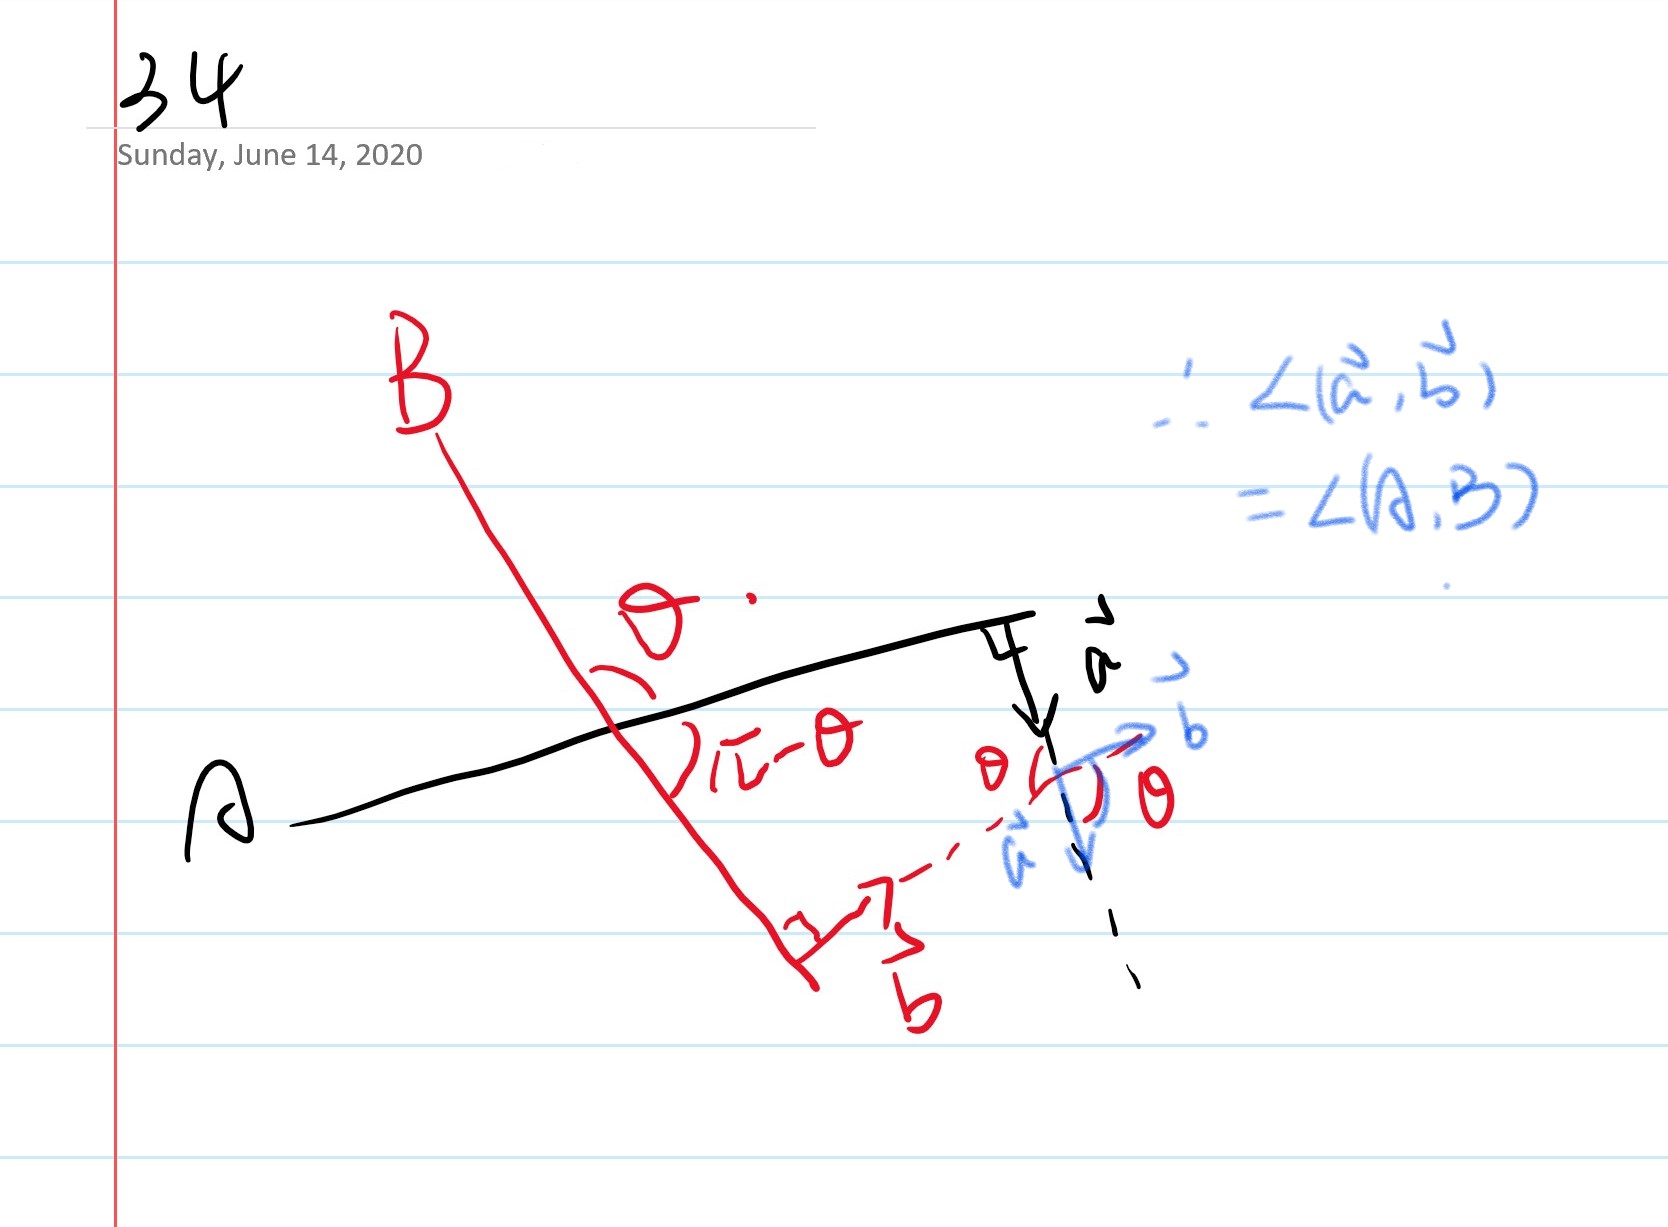 34
Sunday, June 14, 2020
B
∴ ∠(a⃗, b⃗)
= ∠(A, B)
θ
a⃗
b⃗
π-θ
θ
θ
A
a⃗
b⃗